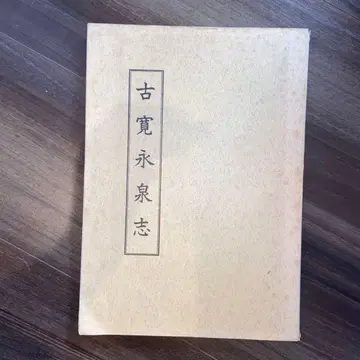 古寛永泉志